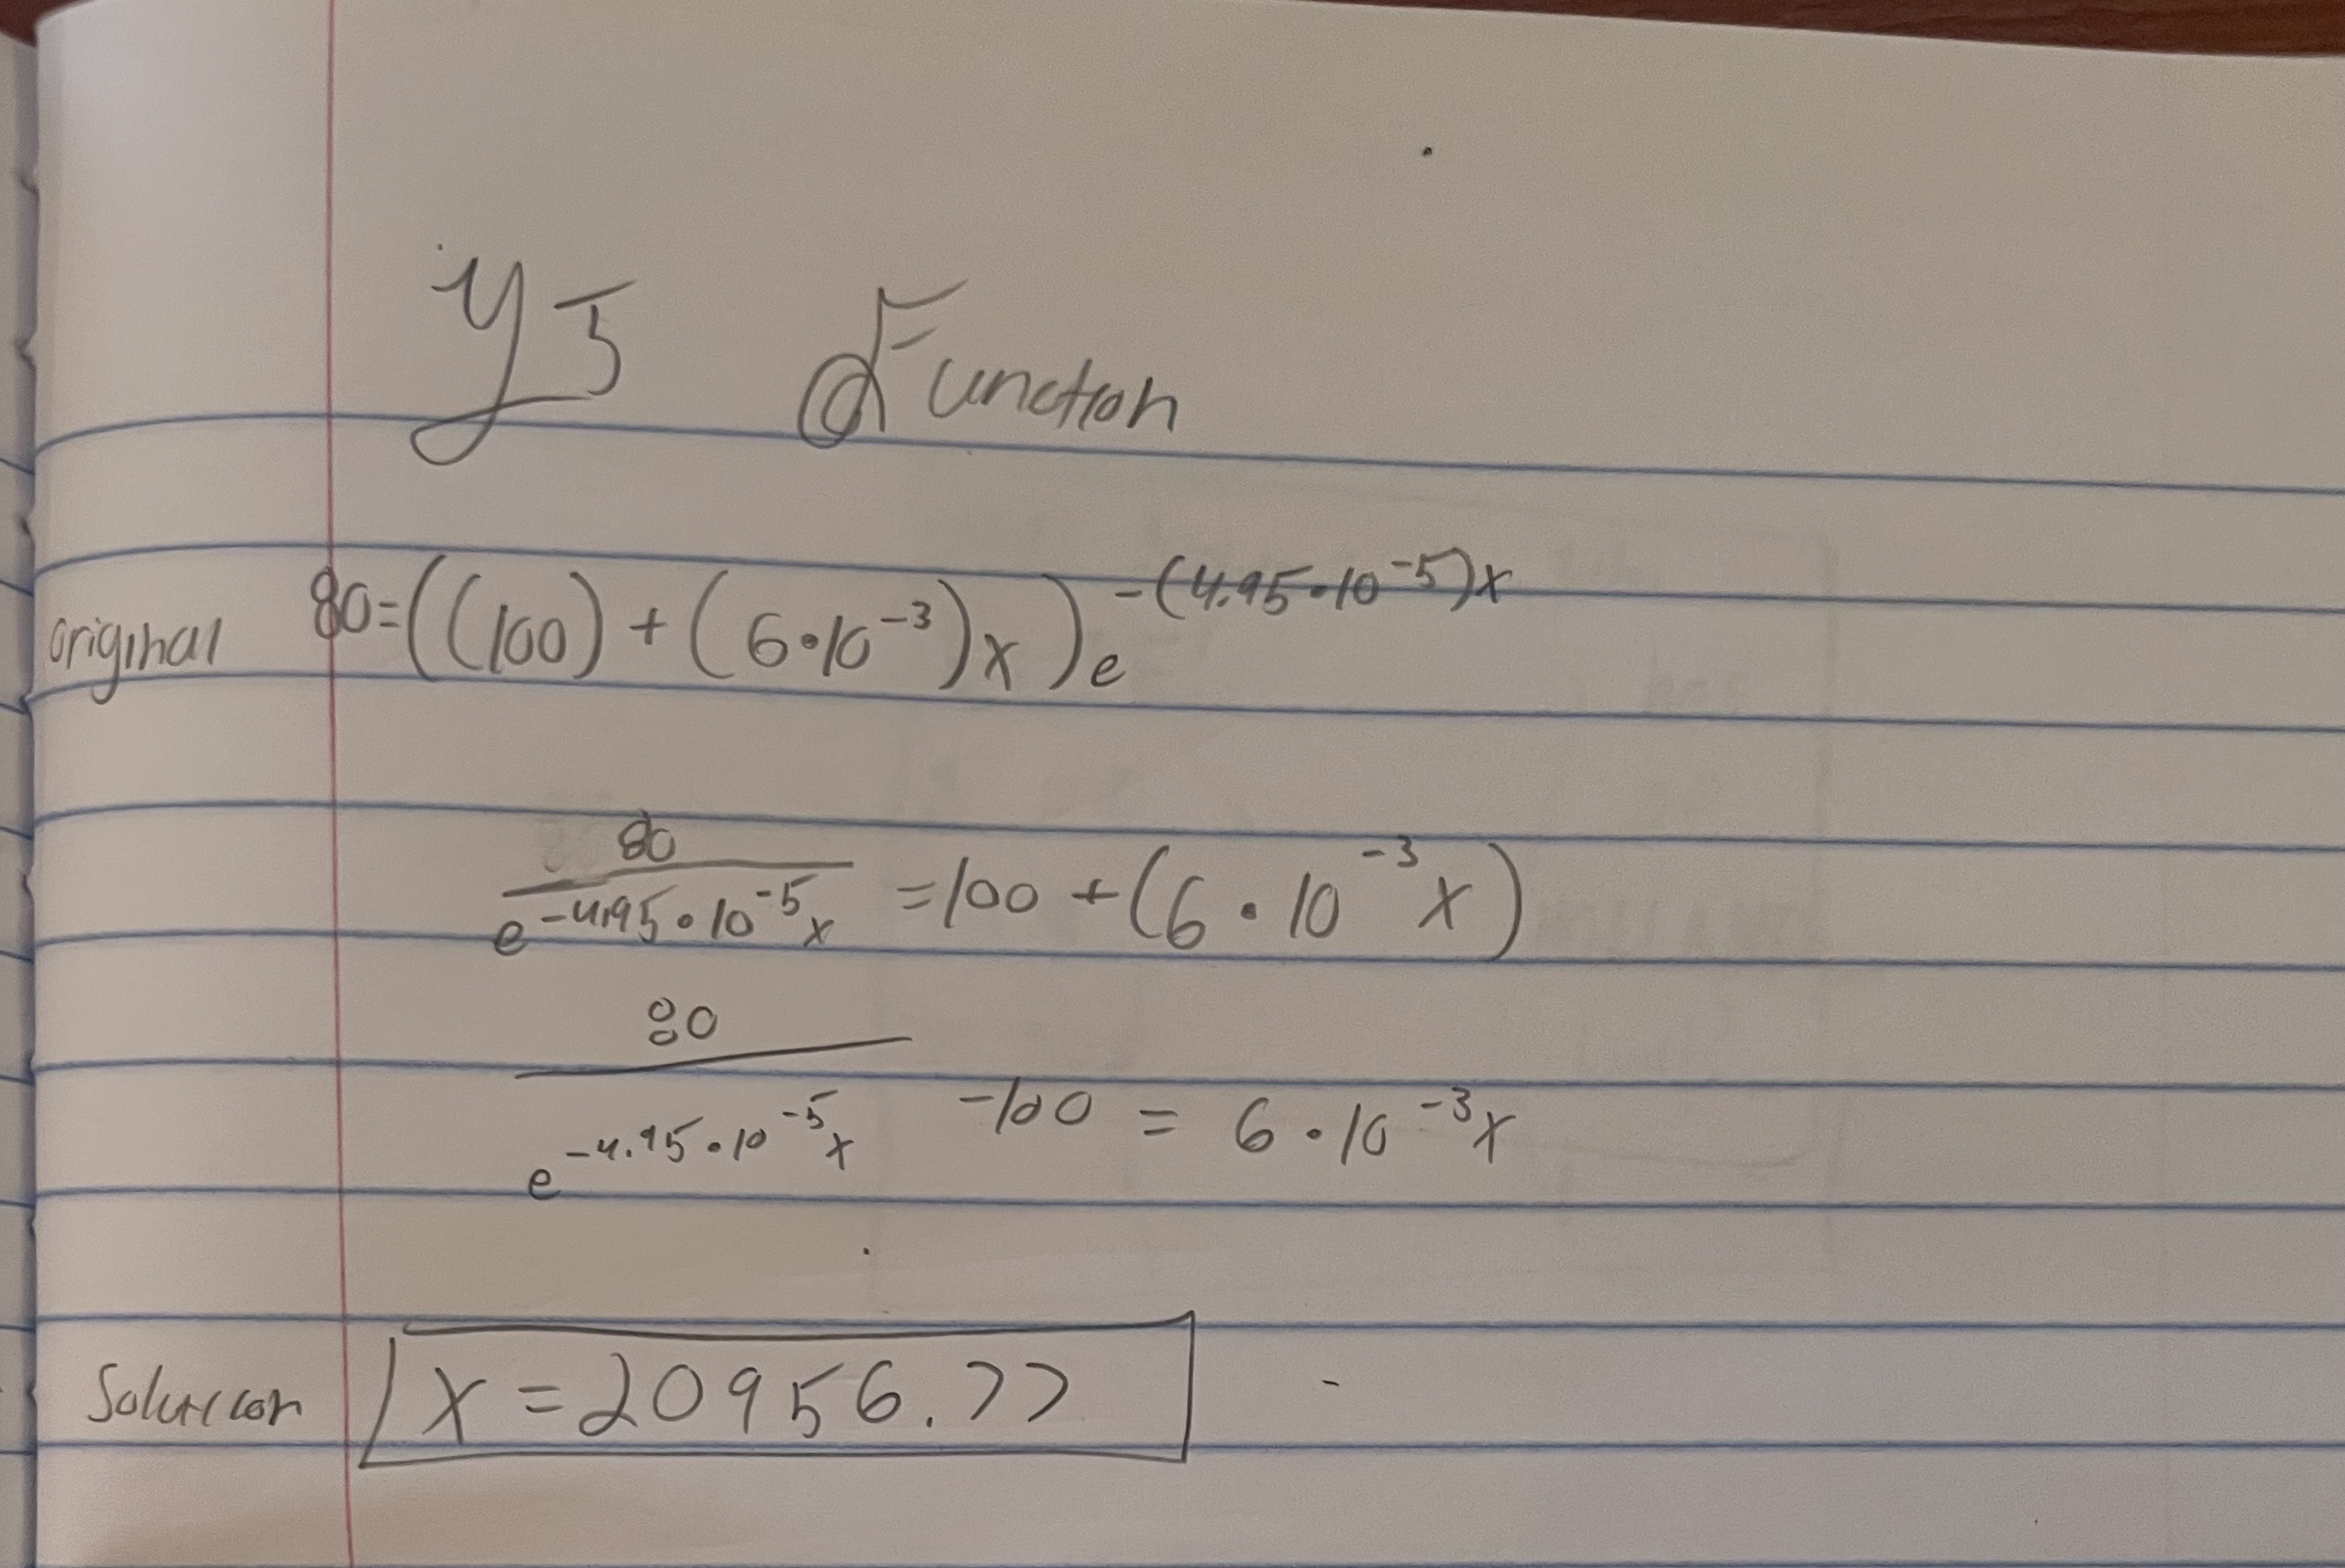 y5 Function
original 80=((100)+(6·10^-3)x)e^-(4.95·10^-5)x
80/e^-4.95·10^-5x =100+(6·10^-3x)
80/e^-4.95·10^-5x -100 = 6·10^-3x
Solution x=20956.77